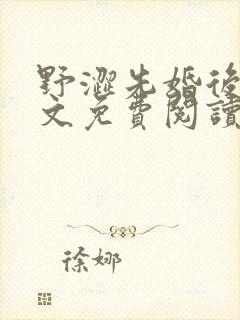 野澀先婚後
文免費閱讀
徐娜